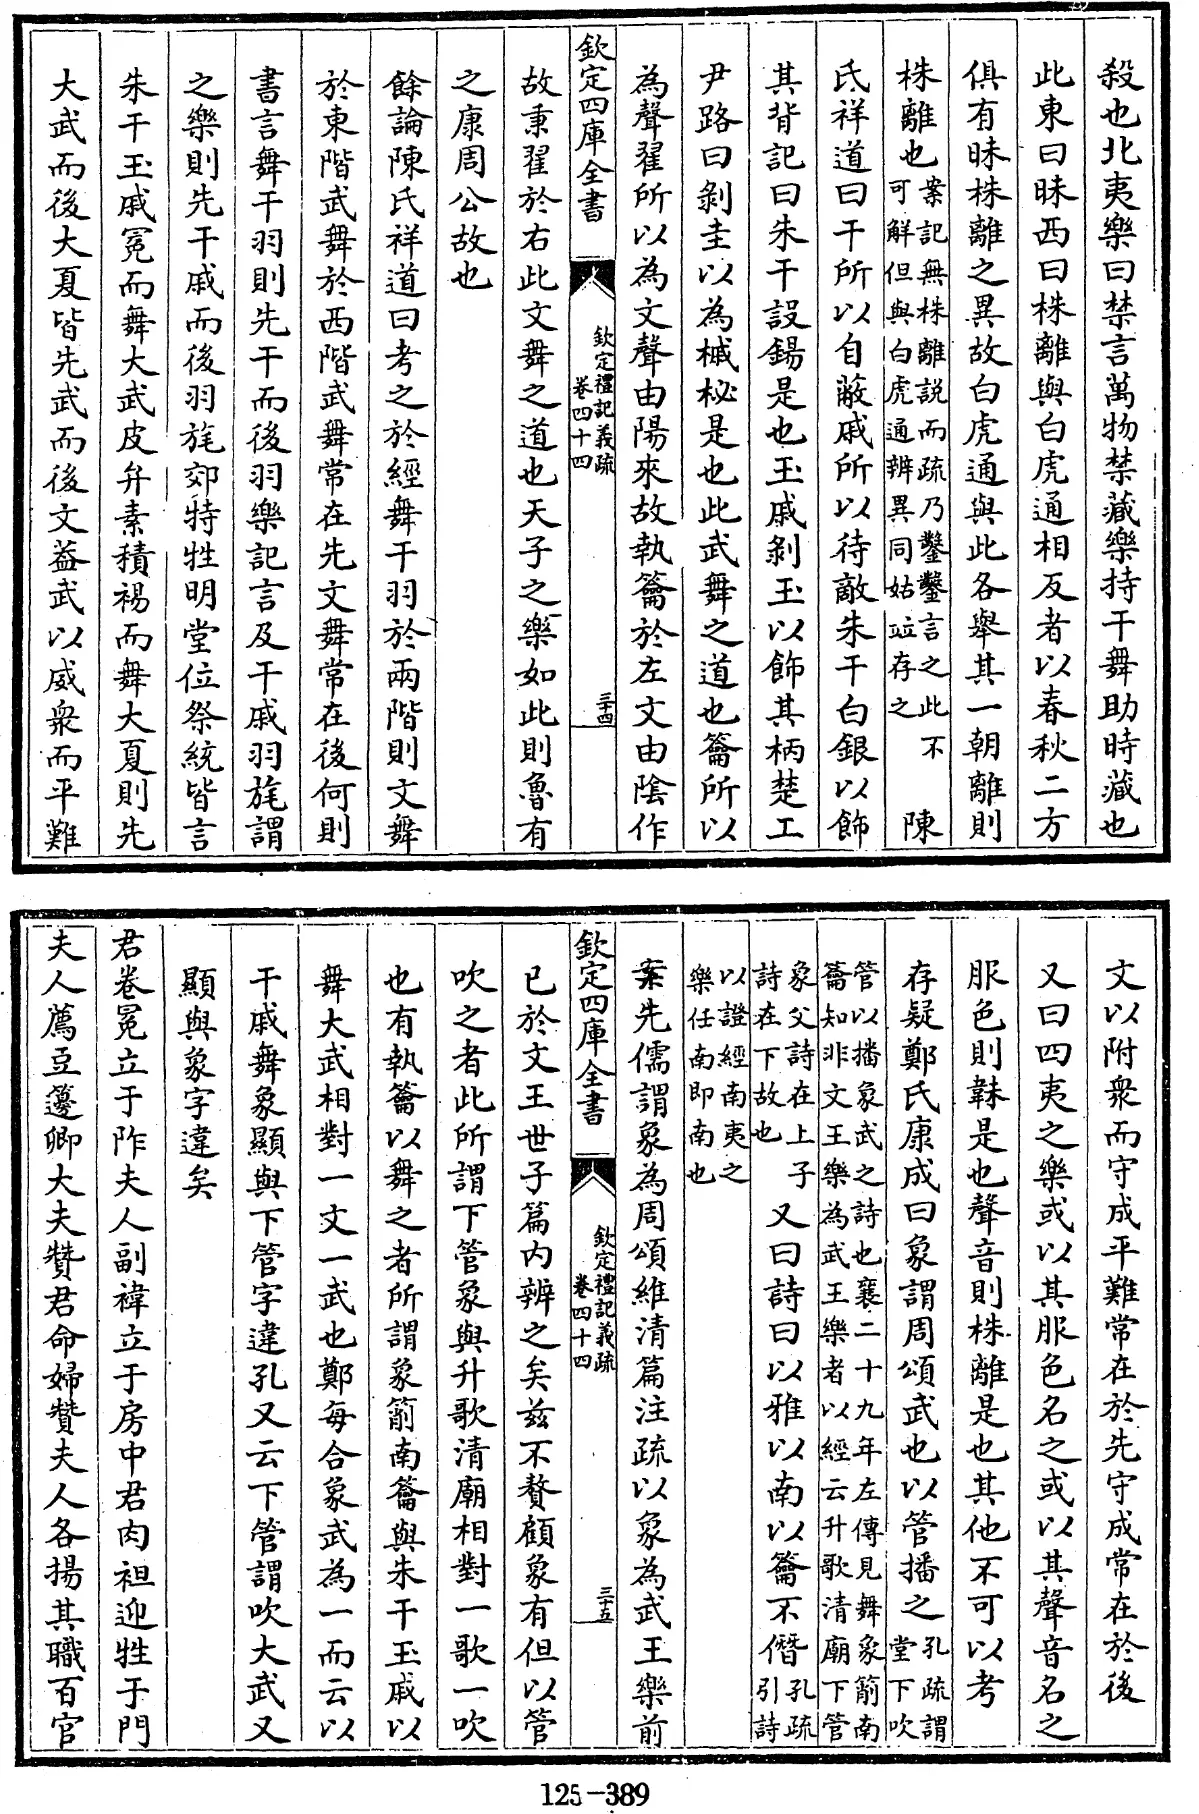 殺也北夷樂曰禁言萬物禁藏樂持干舞助時藏也
此東曰昧西曰株離與白虎通相反者以春秋二方
俱有昧株離之異故白虎通與此各舉其一朝離則
株離也案記無株離說而疏乃鑿鑿言之此不可解但與白虎通辨異同姑竝存之 陳
氏祥道曰干所以自蔽戚所以待敵朱干白銀以飾
其背記曰朱干設鍚是也玉戚剝玉以飾其柄楚工
尹路曰剝圭以為鏚柲是也此武舞之道也籥所以
為聲翟所以為文聲由陽來故執籥於左文由陰作
欽定四庫全書
欽定禮記義疏
卷四十四
三十四
故秉翟於右此文舞之道也天子之樂如此則魯有
之康周公故也
餘論陳氏祥道曰考之於經舞干羽於兩階則文舞
於東階武舞於西階武舞常在先文舞常在後何則
書言舞干羽則先干而後羽樂記言及干戚羽旄謂
之樂則先干戚而後羽旄郊特牲明堂位祭統皆言
朱干玉戚冕而舞大武皮弁素積裼而舞大夏則先
大武而後大夏皆先武而後文葢武以威衆而平難
文以附衆而守成平難常在於先守成常在於後
又曰四夷之樂或以其服色名之或以其聲音名之
服色則韎是也聲音則株離是也其他不可以考
存疑鄭氏康成曰象謂周頌武也以管播之孔疏謂堂下吹
管以播象武之詩也襄二十九年左傳見舞象箾南籥知非文王樂為武王樂者以經云升歌清廟下管
象父詩在上子詩在下故也 又曰詩曰以雅以南以籥不僭孔疏引詩
以證經南夷之樂任南即南也
案先儒謂象為周頌維清篇注疏以象為武王樂前
欽定四庫全書
欽定禮記義疏
卷四十四
三十五
已於文王世子篇內辨之矣茲不贅顧象有但以管
吹之者此所謂下管象與升歌清廟相對一歌一吹
也有執籥以舞之者所謂象箾南籥與朱干玉戚以
舞大武相對一文一武也鄭每合象武為一而云以
干戚舞象顯與下管字違孔又云下管謂吹大武又
顯與象字違矣
君卷冕立于阼夫人副褘立于房中君肉袒迎牲于門
夫人薦豆籩卿大夫贊君命婦贊夫人各揚其職百官
125-389